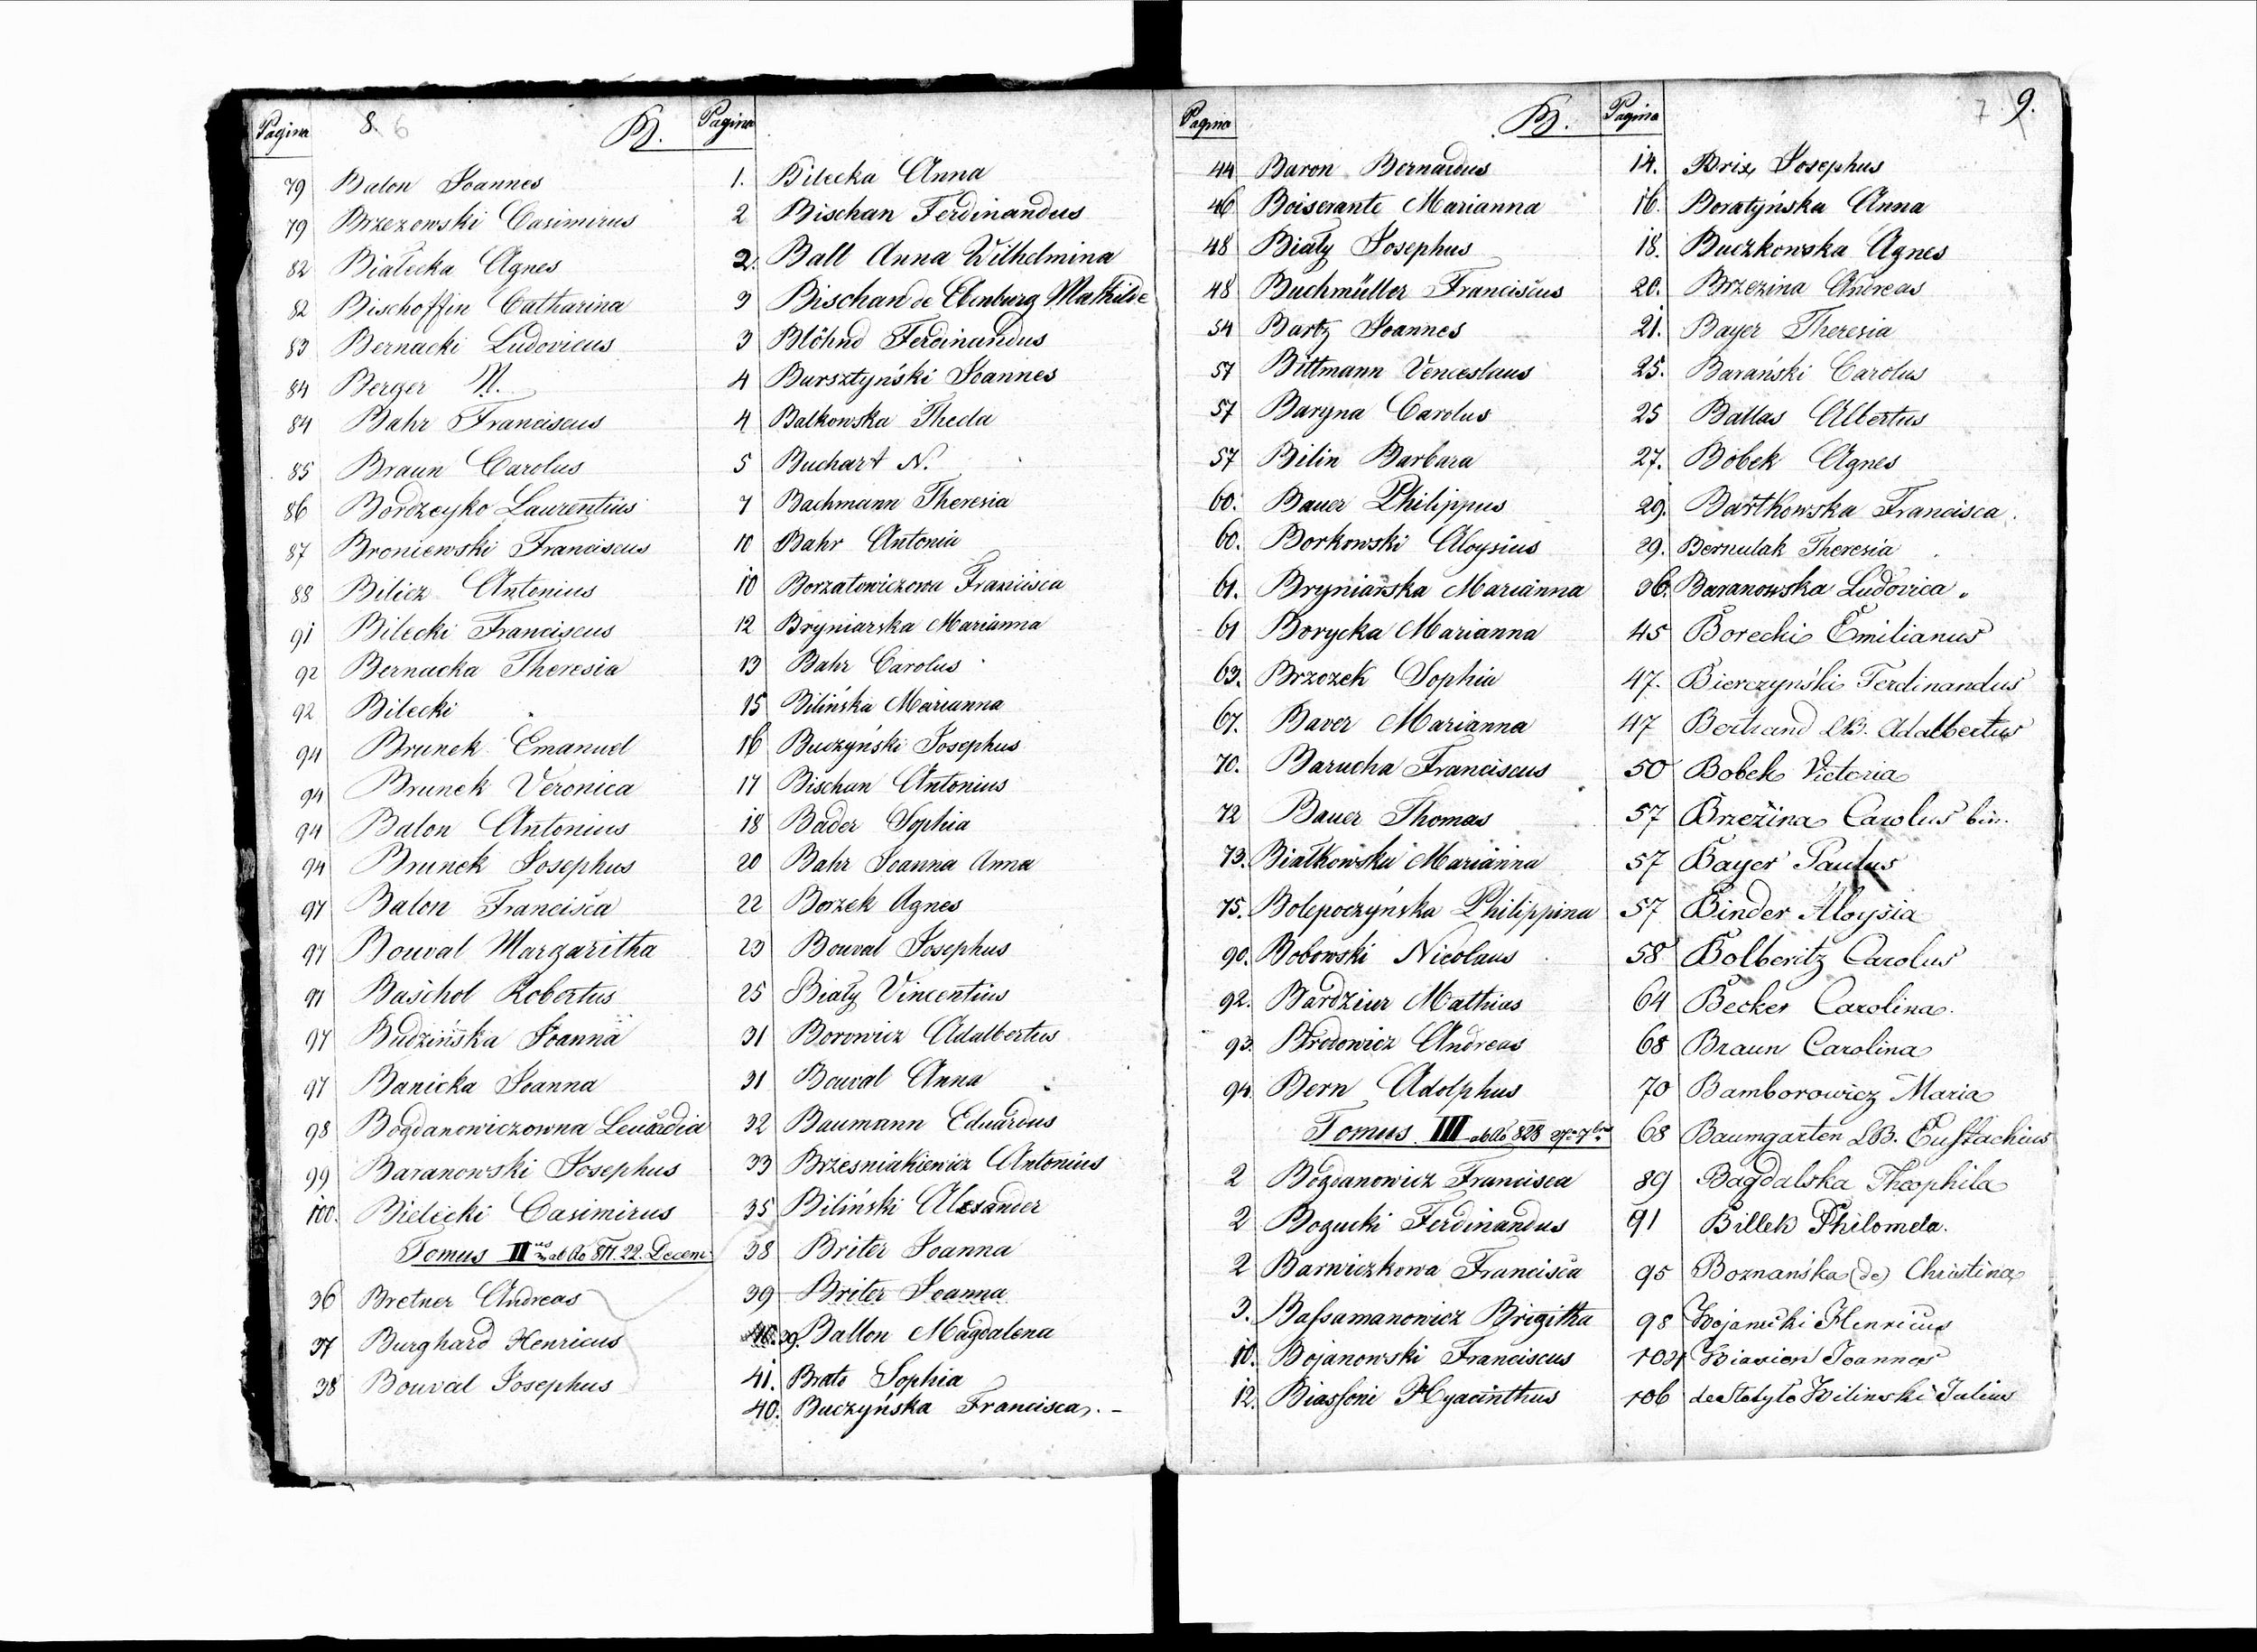 Pagina 8. 6 B.
79 Balon Joannes
79 Brzezowski Casimirus
82 Białecka Agnes
82 Bischoffin Catharina
83 Bernacki Ludovicus
84 Berger N.
84 Bahr Franciscus
85 Braun Carolus
86 Bordzeyko Laurentius
87 Broniewski Franciscus
88 Bilicz Antonius
91 Bilecki Franciscus
92 Bernacka Theresia
92 Bilecki
94 Brunek Emanuel
94 Brunek Veronica
94 Balon Antonius
94 Brunek Josephus
97 Balon Francisca
97 Bouval Margaritha
97 Baschol Robertus
97 Budzińska Joanna
97 Banicka Joanna
98 Bogdanowiczowna Leucadia
99 Baranowski Josephus
100. Bielecki Casimirus
Tomus II 22. Decem
36 Bretner Andreas
37 Burghard Henricus
38 Bouval Josephus
Pagina
1. Bilecka Anna
2 Bischan Ferdinandus
2. Ball Anna Wilhelmina
3 Bischan de Ebenburg Mathilde
3 Blöhnd Ferdinandus
4 Bursztyński Joannes
4 Balkowska Thecla
5 Buchart N.
7 Bachmann Theresia
10 Bahr Antonia
10 Borzatowiczowa Francisca
12 Bryniarska Marianna
13 Bahr Carolus
15 Bilińska Marianna
16 Buczyński Josephus
17 Bischan Antonius
18 Bader Sophia
20 Bahr Joanna Anna
22 Borzek Agnes
23 Bouval Josephus
25 Biały Vincentius
31 Borowicz Adalbertus
31 Bouval Anna
32 Baumann Eduardus
33 Brzesniakiewicz Antonius
35 Biliński Alexander
38 Briter Joanna
39 Briter Joanna
39. Ballon Magdalena
41. Brato Sophia
40. Buczyńska Francisca. -
Pagina B.
44 Baron Bernardus
46 Boiserante Marianna
48 Biały Josephus
48 Buchmüller Franciscus
54 Bartz Joannes
57 Bittmann Venceslaus
57 Baryna Carolus
57 Bilin Barbara
60. Bauer Philippus
60. Borkowski Aloysius
61. Bryniarska Marianna
61 Borycka Marianna
63. Brzozek Sophia
67. Baver Marianna
70. Barucha Franciscus
72 Bauer Thomas
73. Białkowska Marianna
75. Bolepoczyńska Philippina
90. Bobowski Nicolaus
92. Bardziur Mathias
93. Brodowicz Andreas
94 Bern Adolphus
Tomus III 828
2 Bogdanowicz Francisca
2 Bogucki Ferdinandus
2 Barwiczkowa Francisca
3. Bassamanowicz Brigitha
10. Bojanowski Franciscus
12. Biassoni Hyacinthus
Pagina 7 9.
14. Brix Josephus
16. Boratyńska Anna
18. Buczkowska Agnes
20. Brzezina Andreas
21. Bayer Theresia
25. Barański Carolus
25 Ballas Albertus
27. Bobek Agnes
29. Bartkowska Francisca
29. Bernulak Theresia
36. Baranowska Ludovica
45 Borecki Emilianus
47. Bierczyński Ferdinandus
47 Bertrand LB. Adalbertus
50 Bobek Victoria
57 Brzezina Carolus bin.
57 Bayer Paulus
57 Binder Aloysia
58 Bolberitz Carolus
64 Becker Carolina
68 Braun Carolina
70 Bamborowicz Maria
68 Baumgarten LB. Eustachius
89 Bagdalska Theophila
91 Billek Philomela.
95 Boznańska (de) Christina
98 Bojański Henricus
104 Biarion Joannes
106 de Stotyło Bilinski Julius